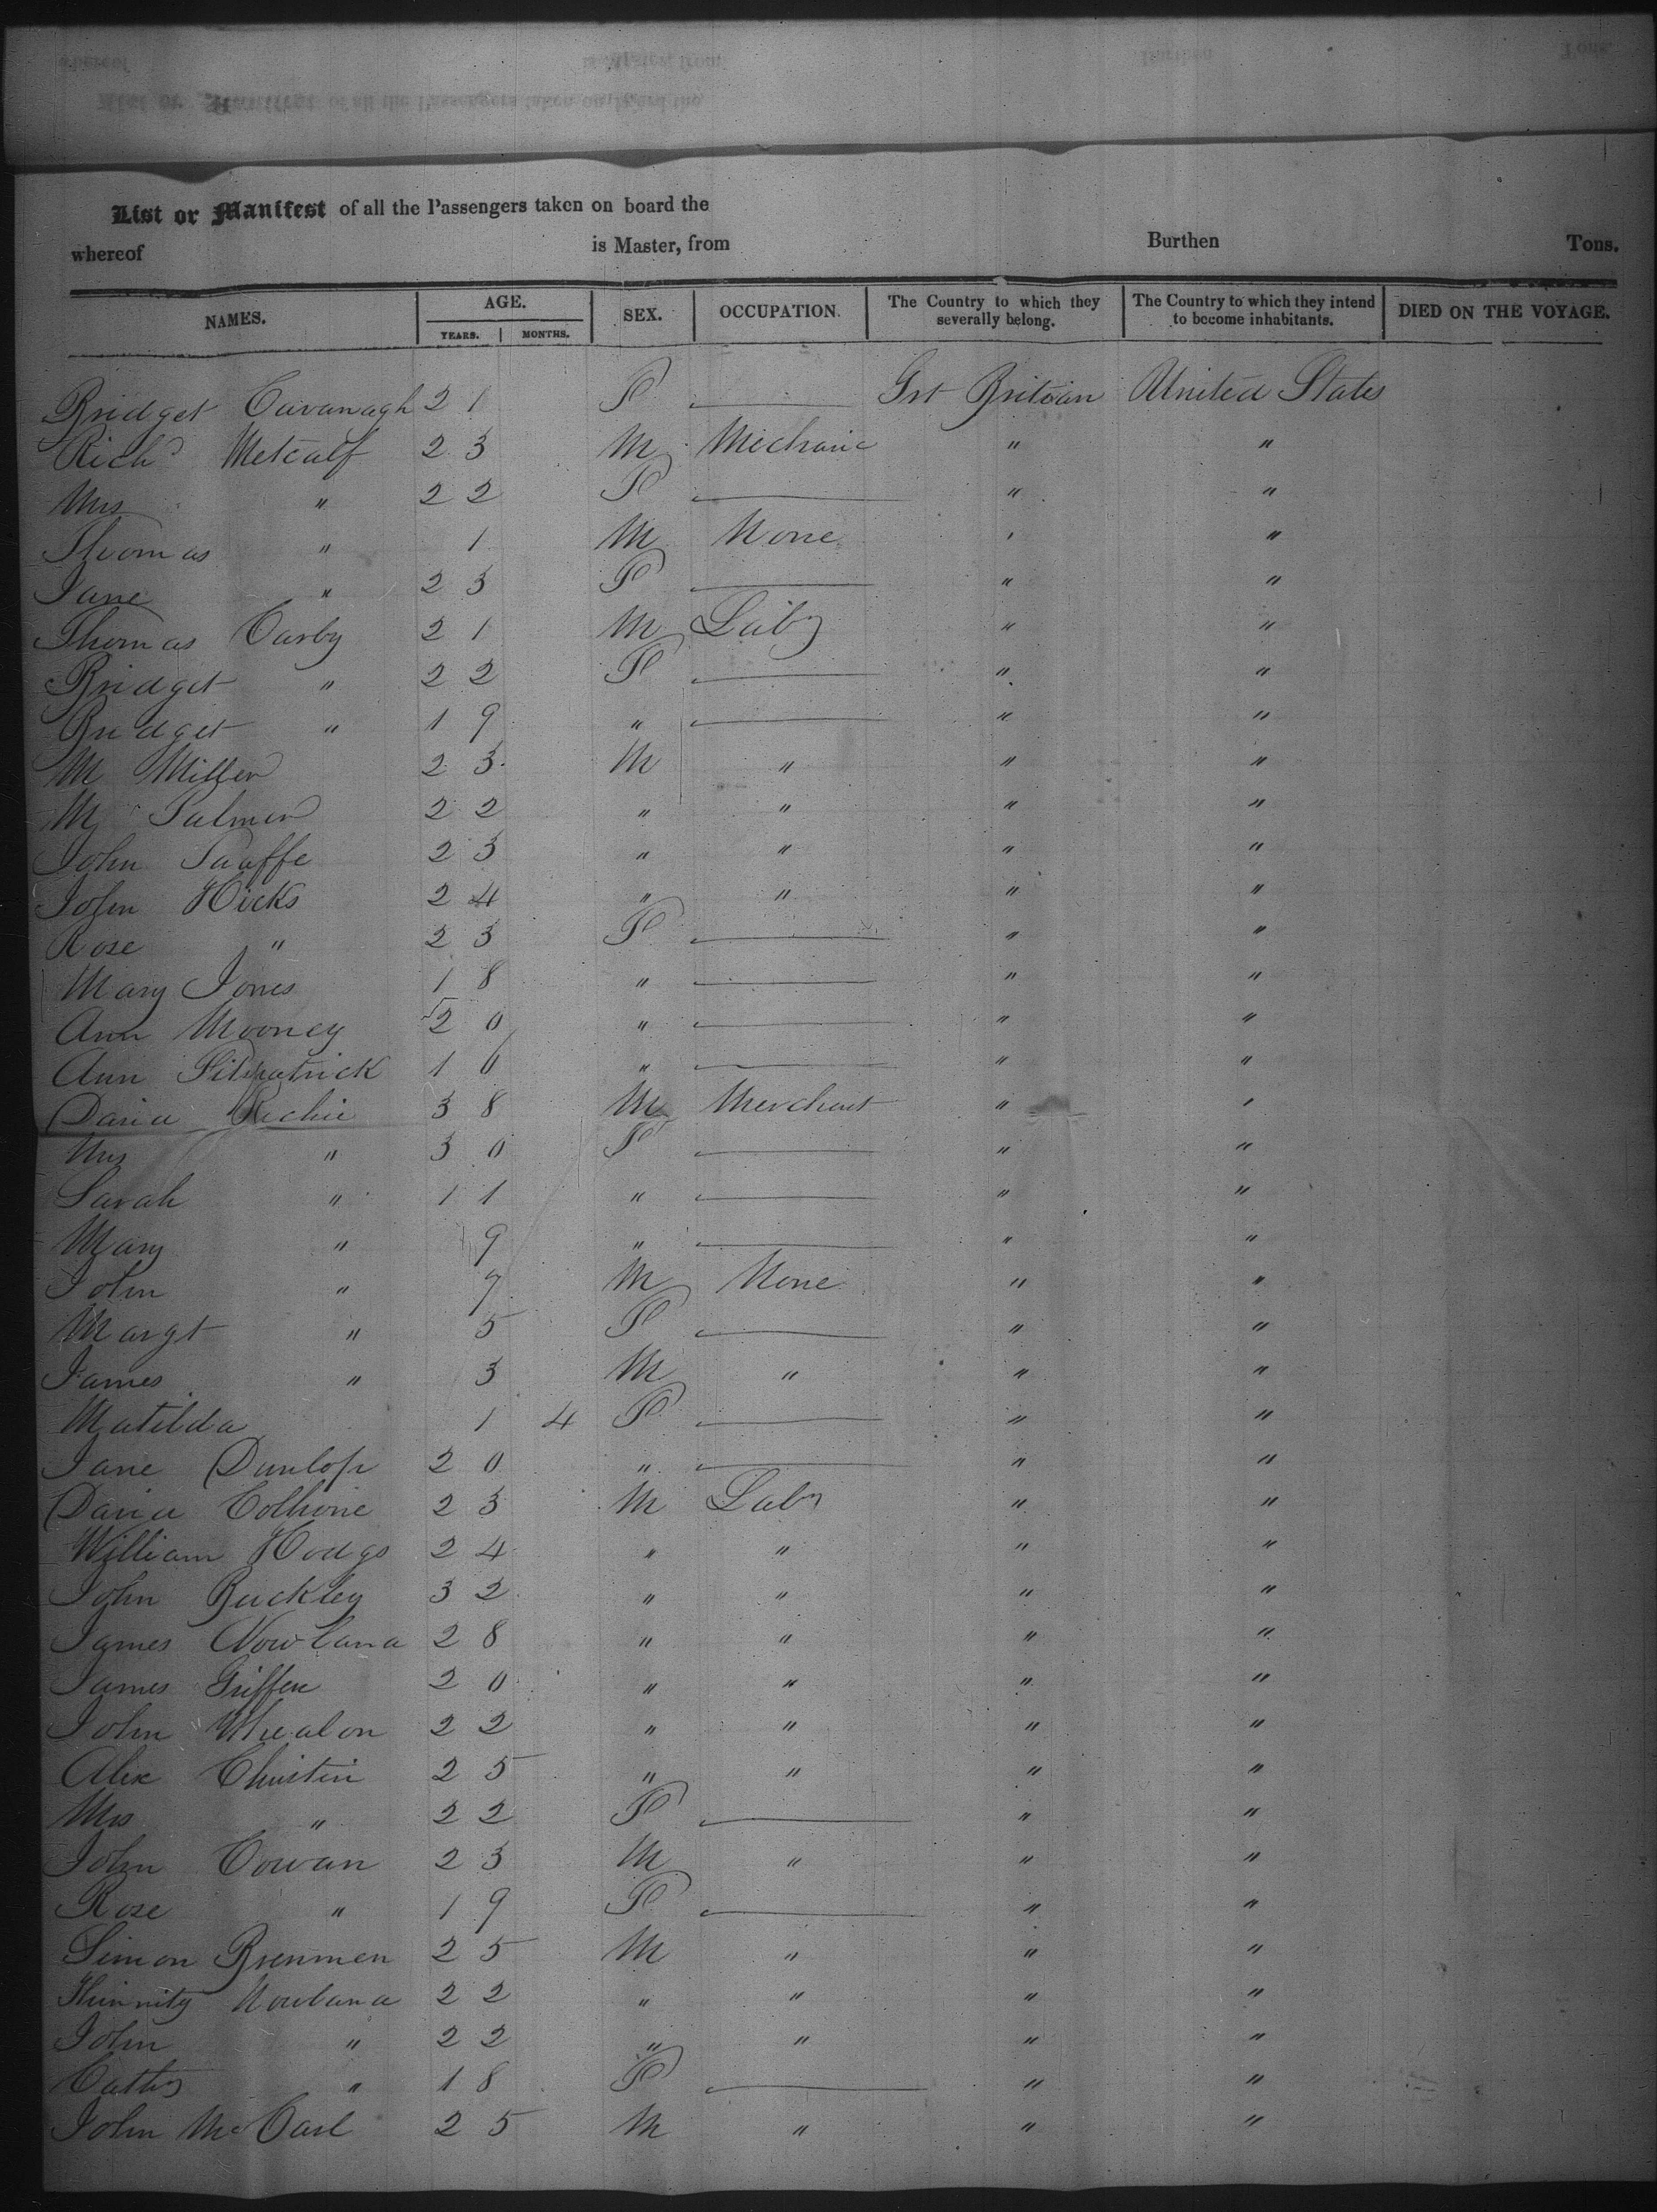 List or Manifest of all the Passengers taken on board the
whereof is Master, from Burthen Tons.
NAMES. AGE. YEARS. MONTHS. SEX. OCCUPATION. The Country to which they severally belong. The Country to which they intend to become inhabitants. DIED ON THE VOYAGE.
Bridget Cavanagh 21 F — Grt Britian United States
Richd Metcalf 23 M Mechanic " "
Mrs " 22 F — " "
Thomas " 1 M None " "
Jane " 23 F — " "
Thomas Carby 21 M Labr " "
Bridget " 22 F — " "
Bridget " 19 " — " "
M Miller 23 M " " "
M Palmer 22 " " " "
John 23 " " " "
John Hicks 24 " " " "
Rose " 23 F — " "
Mary Jones 18 " — " "
Ann Mooney 20 " — " "
Ann Fitzpatrick 16 " — " "
David Richie 38 M Merchant " "
Mrs " 30 F — " "
Sarah " 11 " — " "
Mary " 9 " — " "
John " 7 M None " "
Margt " 5 F — " "
James " 3 M " " "
Matilda 1 4 F — " "
Jane Dunlop 20 " — " "
David Colhone 23 M Labr " "
William Hodgs 24 " " " "
John Buckley 32 " " " "
James Nowland 28 " " " "
James Griffen 20 " " " "
John Whealon 22 " " " "
Alex Christie 25 " " " "
Mrs " 22 F — " "
John Cowan 23 M " " "
Rose " 19 F — " "
Simon Brenmen 25 M " " "
Nowland 22 " " " "
John " 22 " " " "
" 18 F — " "
John McCarl 25 M " " "